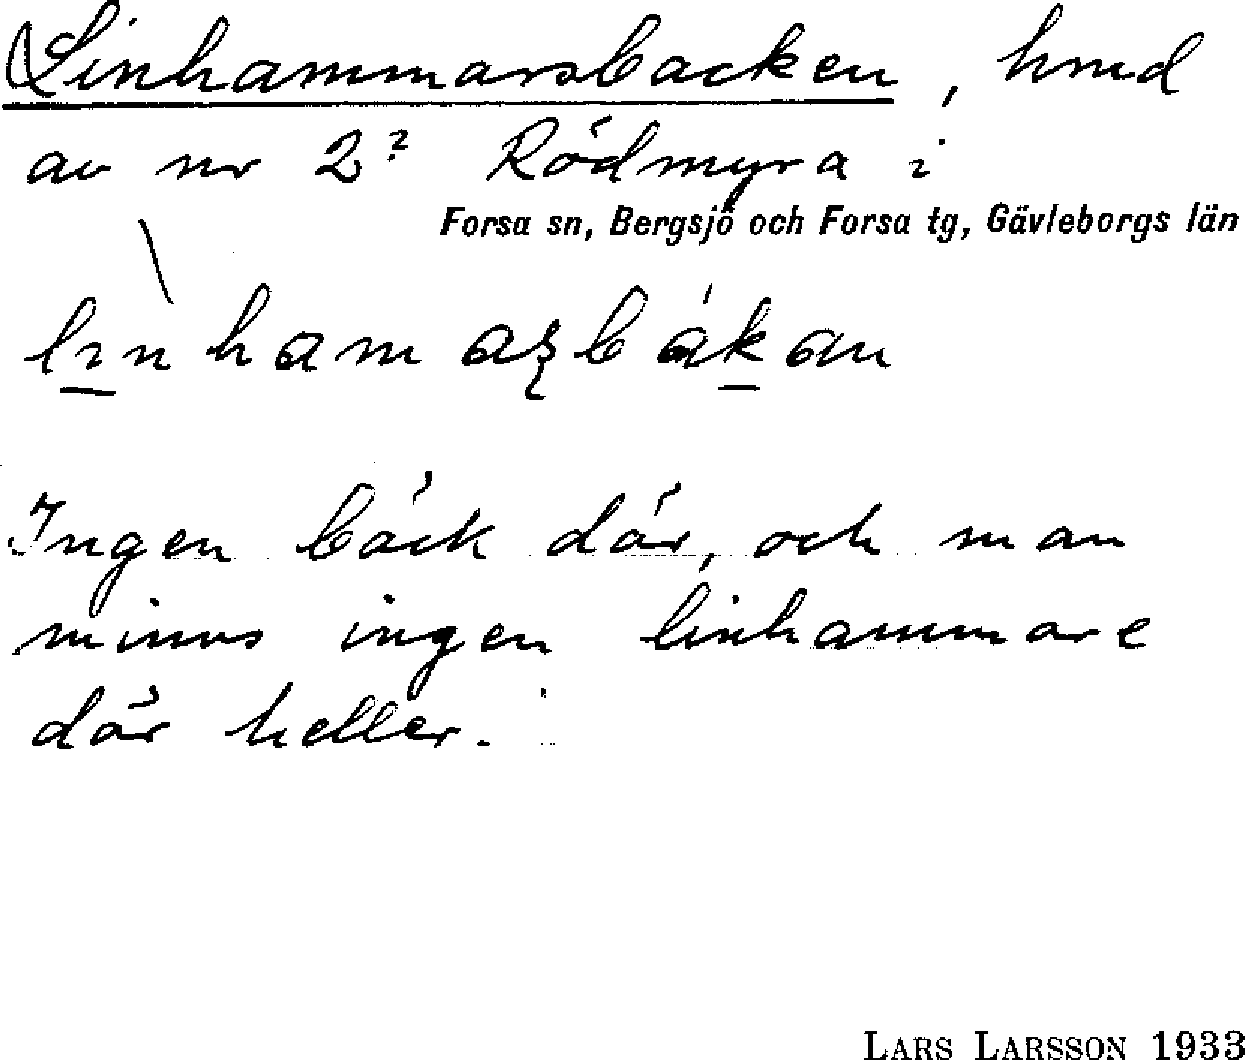 Linhammarsbacken, hmd
av nr 2? Rödmyra i
Forsa sn, Bergsjö och Forsa tg, Gävleborgs län
Ingen bäck där, och man
minns ingen linhammare
där heller.
LARS LARSSON 1933